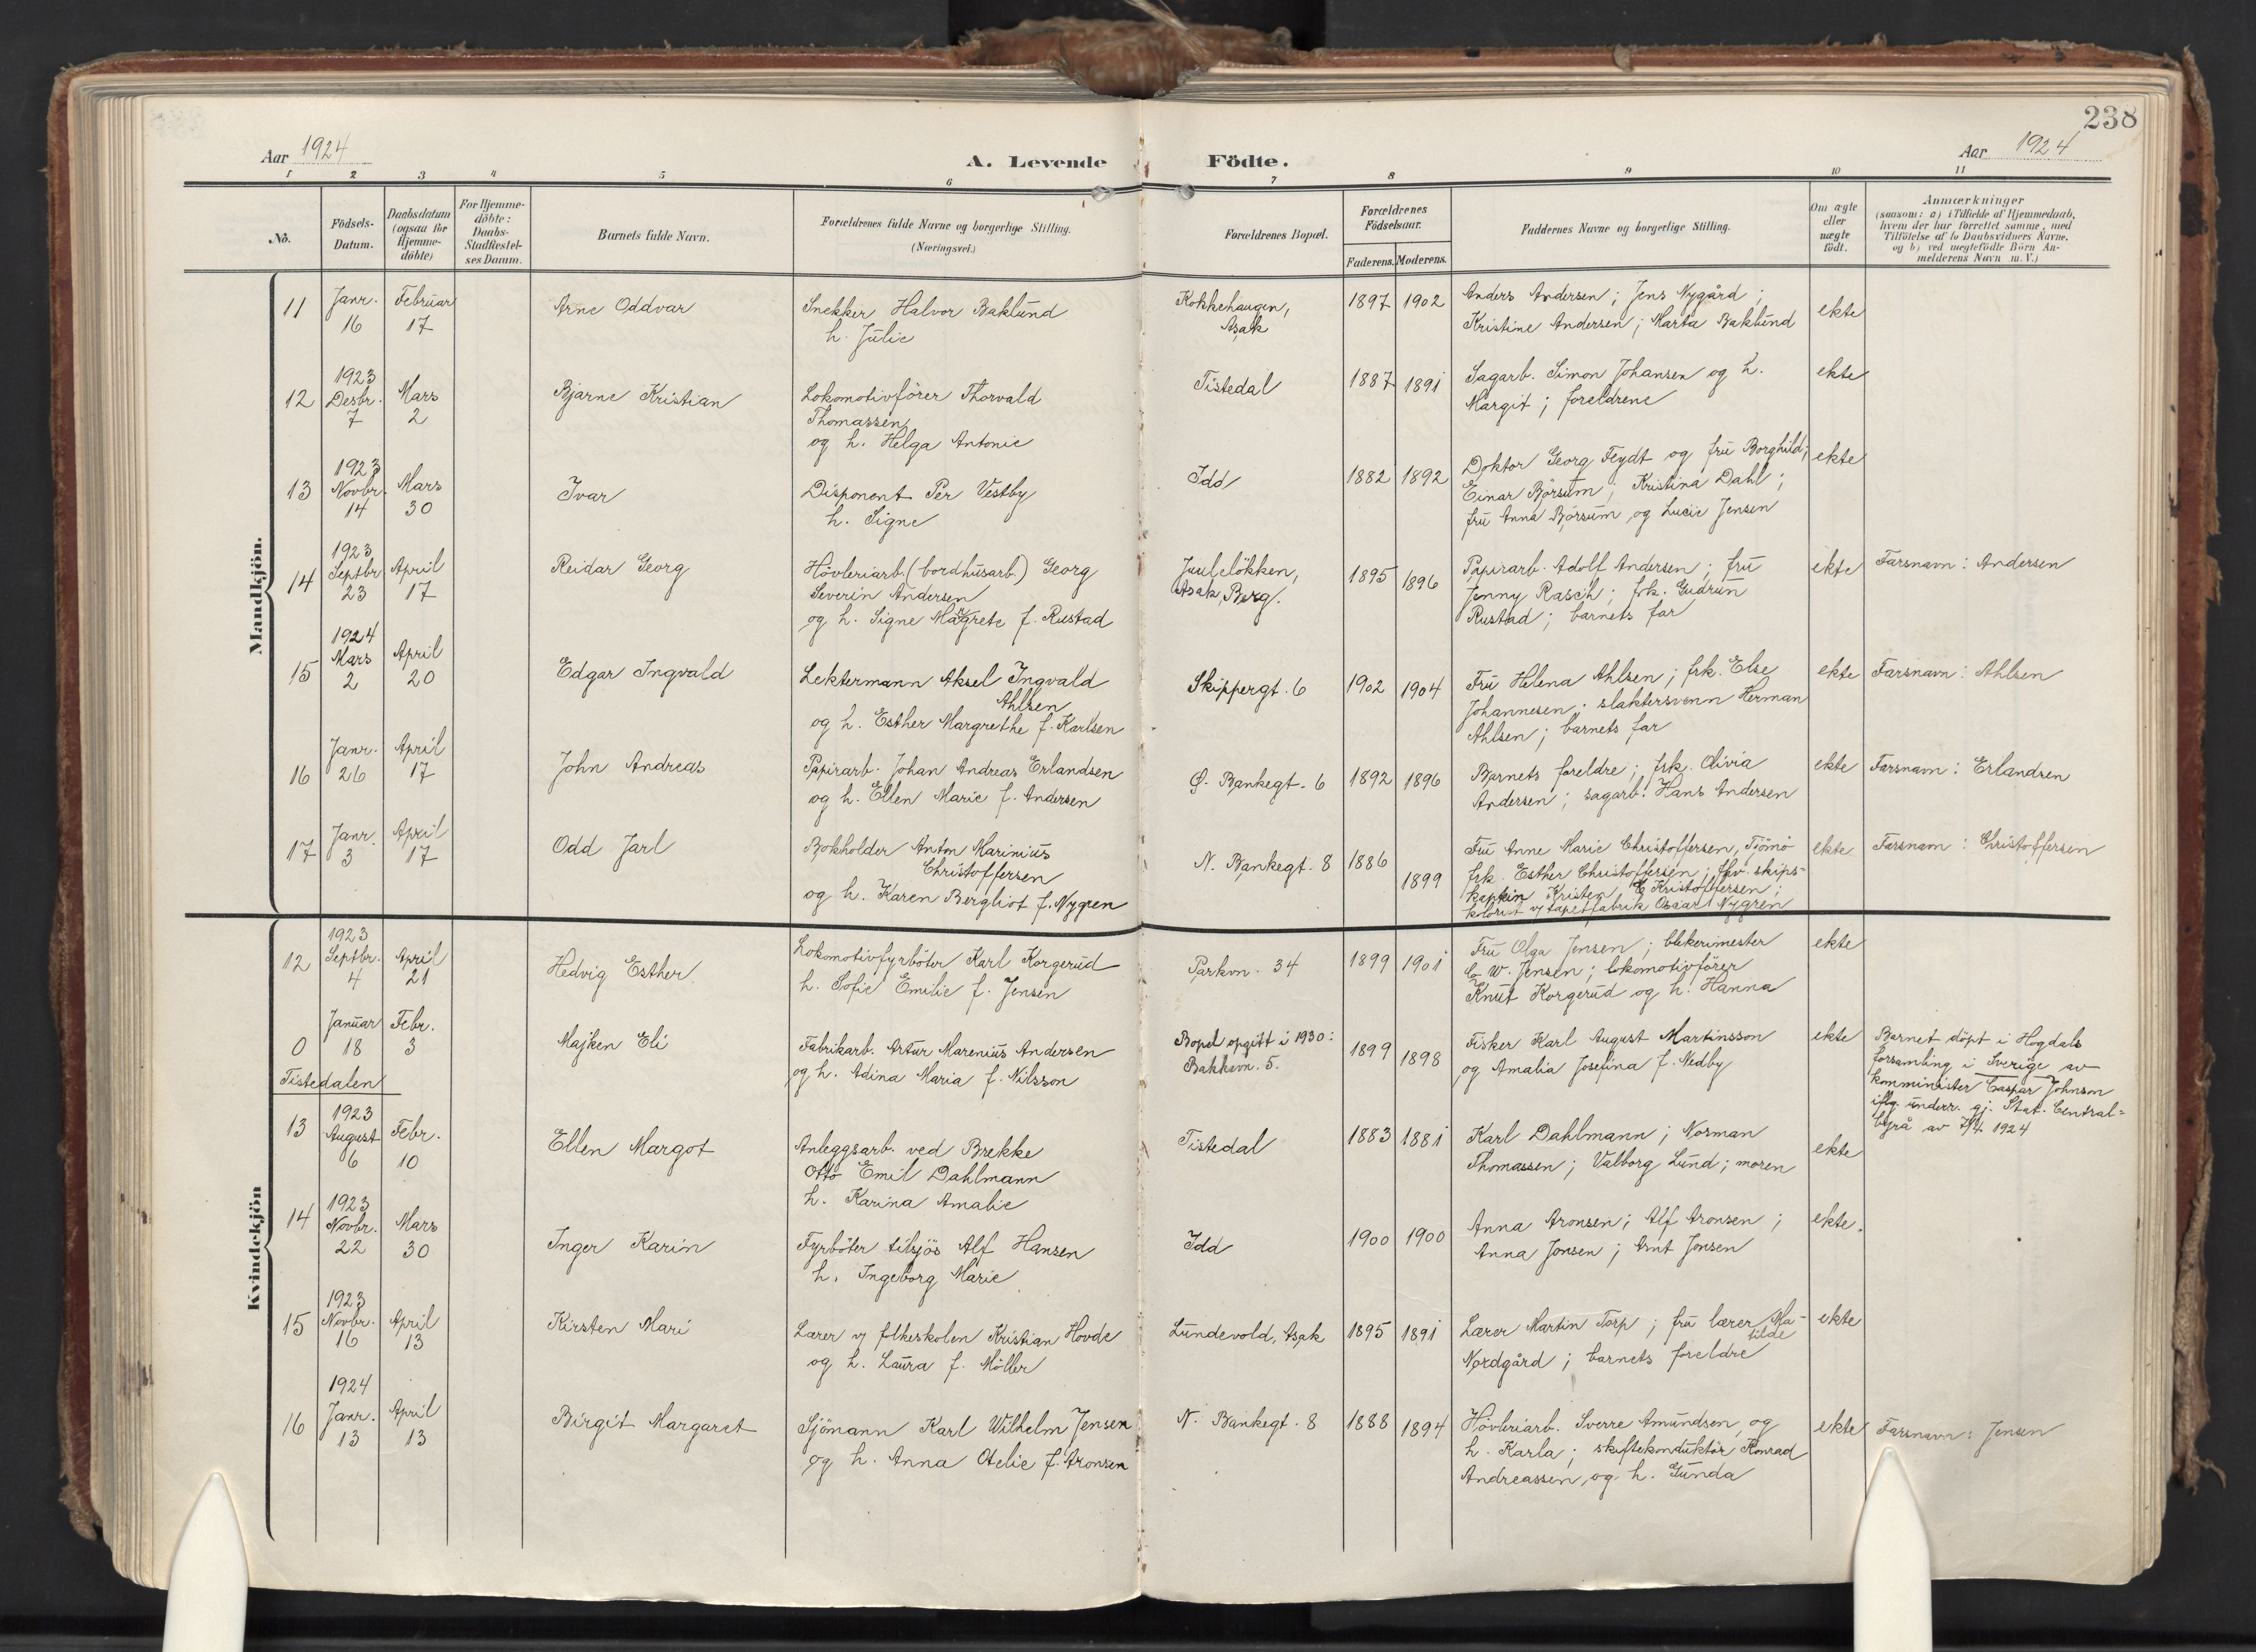 238
Aar 1924
A. Levende Födte.
Aar 1924
1 2 3 4 5 6 7 8 9 10 11
No.
Födsels-
Datum.
Daabsdatum
(ogsaa for
Hjemme-
döbte)
For Hjemme-
döbte:
Daabs-
Stadfæstel-
ses Datum.
Barnets fulde Navn.
Forældrenes fulde Navne og borgerlige Stilling.
(Næringsvei.)
Forældrenes Bopæl.
Forældrenes
Födselsaar.
Faderens. Moderens.
Faddernes Navne og borgerlige Stilling.
Om ægte
eller
uægte
födt.
Anmærkninger
(saasom: a) i Tilfælde af Hjemmedaab,
hvem der har forrettet samme, med
Tilföielse af to Daabsvidners Navne,
og b) ved uægtefödte Börn An-
melderens Navn m. V.)
Mandkjön.
11
Janr.
16
Februar
17
Arne Oddvar
Snekker Halvor Baklund
h. Julie
Kokkehaugen,
Asak
1897 1902
Anders Andersen; Jens Nygård;
Kristine Andersen; Marta Baklund
ekte
12
1923
Desbr.
7
Mars
2
Bjarne Kristian
Lokomotivförer Thorvald
Thomassen
og h. Helga Antonie
Tistedal
1887 1891
Sagarb. Simon Johansen og h.
Margit; foreldrene
ekte
13
1923
Novbr.
14
Mars
30
Ivar
Disponent Per Vestby
h. Signe
Idd
1882 1892
Doktor Georg Feydt og fru Borghild;
Einar Börsum; Kristina Dahl;
fru Anna Börsum og Lucie Jensen
ekte
14
1923
Septbr
23
April
17
Reidar Georg
Hövleriarb. (bordhusarb.) Georg
Severin Andersen
og h. Signe Margrete f. Rustad
Juulelökken,
Asak, Berg.
1895 1896
Papirarb. Adolf Andersen; fru
Jenny Rasch; frk. Gudrun
Rustad; barnets far
ekte
Farsnavn: Andersen
15
1924
Mars
2
April
20
Edgar Ingvald
Lektermann Aksel Ingvald
Ahlsen
og h. Esther Margrethe f. Karlsen
Skippergt. 6
1902 1904
Fru Helena Ahlsen; frk. Else
Johannesen; slaktersvenn Herman
Ahlsen; barnets far
ekte
Farsnavn: Ahlsen
16
Janr.
26
April
17
John Andreas
Papirarb. Johan Andreas Erlandsen
og h. Ellen Marie f. Andersen
Ø. Bankegt. 6
1892 1896
Barnets foreldre; frk. Olivia
Andersen; sagarb. Hans Andersen
ekte
Farsnavn: Erlandsen
17
Janr.
3
April
17
Odd Jarl
Bokholder Anton Marinius
Christoffersen
og h. Karen Bergliot f. Nygren
N. Bankegt. 8
1886
1899
Fru Anne Marie Christoffersen, Tjömö
frk. Esther Christoffersen; fhv. skips-
kaptein Kristen Kristoffersen;
kolorist v/ tapetfabrik Oscar Nygren
ekte
Farsnavn: Christoffersen
Kvindekjön
12
1923
Septbr.
4
April
21
Hedvig Esther
Lokomotivfyrböter Karl Korgerud
h. Sofie Emilie f. Jensen
Parkvn. 34
1899 1901
Fru Olga Jensen; blekerimester
C. W. Jensen; lokomotivförer
Knut Korgerud og h. Hanna
ekte
0
Januar
18
Febr.
3
Majken Eli
Fabrikarb. Artur Marenius Andersen
og h. Adina Maria f. Nilsson
Bopel opgitt i 1930:
Bakkevn. 5.
1899 1898
Fisker Karl August Martinsson
og Amalia Josefina f. Nedby
ekte
Barnet döpt i Hogdals
forsamling i Sverige av
komminister Caspar Johnson
iflg. underr. gj. Stat. Central-
byrå av 7/4 1924
Tistedalen
13
1923
August
6
Febr.
10
Ellen Margot
Anleggsarb. ved Brekke
Otto Emil Dahlmann
h. Karina Amalie
Tistedal
1883 1881
Karl Dahlmann; Norman
Thomassen; Valborg Lund; moren
ekte
14
1923
Novbr.
22
Mars
30
Inger Karin
Fyrböter tilsjös Alf Hansen
h. Ingeborg Marie
Idd
1900 1900
Anna Aronsen; Alf Aronsen;
Anna Jonsen; Arnt Jonsen
ekte.
15
1923
Novbr.
16
April
13
Kirsten Mari
Lærer v/ folkeskolen Kristian Hovde
og h. Laura f. Möller
Lundevold, Asak
1895 1891
Lærer Martin Torp; fru lærer Ma-
tilde
Nordgård; barnets foreldre
ekte
16
1924
Janr.
13
April
13
Birgit Margaret
Sjömann Karl Wilhelm Jensen
og h. Anna Otelie f. Aronsen
N. Bankegt. 8
1888 1894
Hövleriarb. Sverre Amundsen og
h. Karla; skiftekonduktör Konrad
Andreassen og h. Gunda
ekte
Farsnavn: Jensen